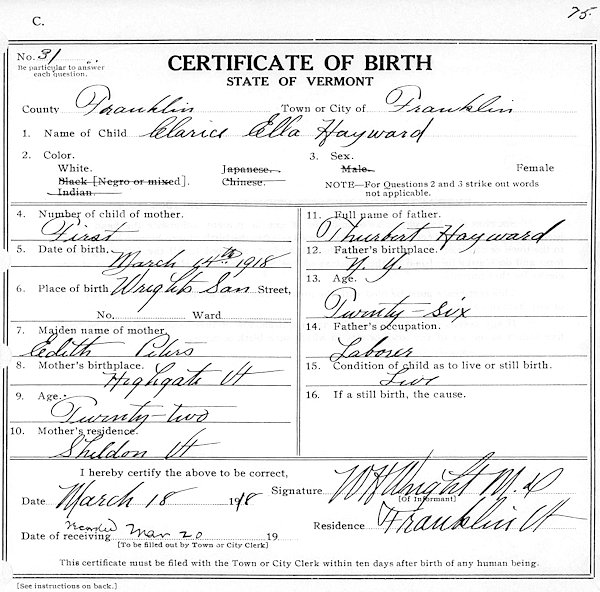 C. 75.
No. 31
Be particular to answer
each question.
CERTIFICATE OF BIRTH
STATE OF VERMONT
County Franklin Town or City of Franklin
1. Name of Child Clarice Ella Hayward
2. Color. 3. Sex.
White. Japanese. Male. Female
Black [Negro or mixed]. Chinese. NOTE—For Questions 2 and 3 strike out words
Indian. not applicable.
4. Number of child of mother.
First
5. Date of birth.
March 14th 1918
6. Place of birth Wrights San Street,
No. Ward
7. Maiden name of mother.
Edith Peters
8. Mother's birthplace.
Highgate Vt
9. Age.
Twenty-two
10. Mother's residence.
Sheldon Vt
11. Full name of father.
Thurbert Hayward
12. Father's birthplace.
N. Y.
13. Age.
Twenty-six
14. Father's occupation.
Laborer
15. Condition of child as to live or still birth.
Live
16. If a still birth, the cause.
I hereby certify the above to be correct,
Date March 18 1918 Signature W H Wright M.D
[Of Informant]
Date of receiving Mar 20 19 Residence Franklin Vt
[To be filled out by Town or City Clerk]
This certificate must be filed with the Town or City Clerk within ten days after birth of any human being.
[See instructions on back.]